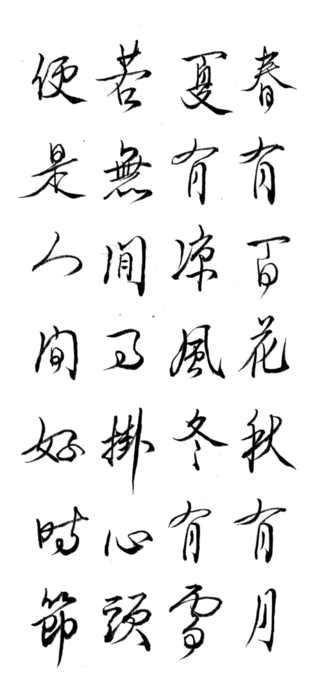 春有百花秋有月
夏有凉風冬有雪
若無閒事掛心頭
便是人間好時節